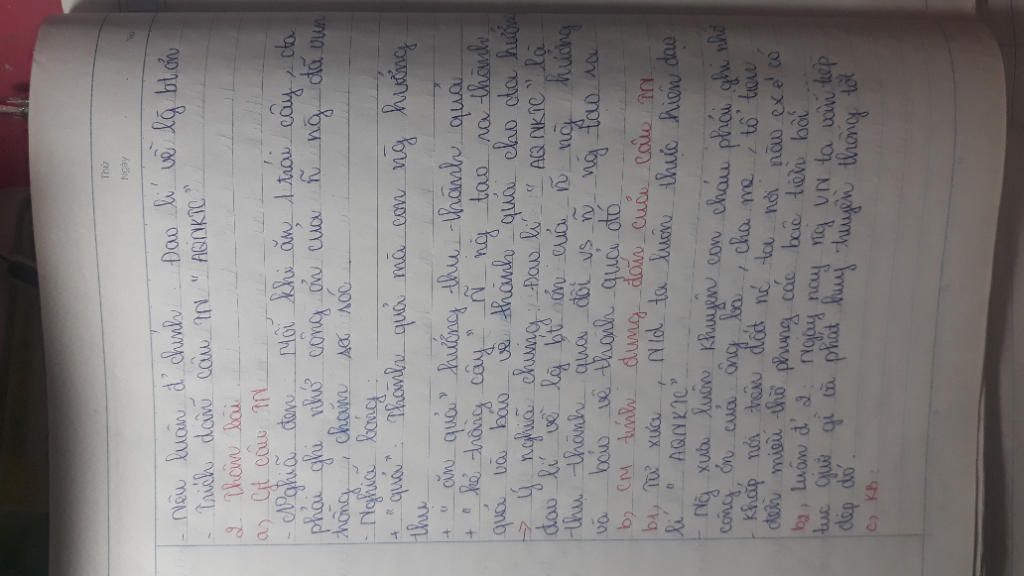 Thứ
Ngày
- Nêu luận đ' chính: Đạo lí về lg btơn
- Trích dẫn câu TN "AQNKTC"
2. Thân bài
a, Gt câu TN
- Nghĩa đen: Mỗi khi ăn 1 trái cây, ta
phải ghi nhớ công ơn của ñ ng đã vun
trồng, chăm sóc
- Nghĩa bóng:
+ "quả": Thành quả mà con ng hưởng
thụ
+ "ăn quả" hưởng thụ thành quả
+ "kẻ trồng cây" ñ ng tạo ra thành
quả và bảo vệ thành quả cho ta hưởng
→ Ý nghĩa chung: Đạo lí "AQNKTC" là
đạo lí về lg bt ơn của ñ ng hưởng
thụ thành quả đối vs ñ ng tạo ra
và bảo vệ thành quả đó
b, CM tính đúng đắn của câu TN
b1, Từ xưa, Nd ta luôn thực hiện đạo
lí "AQNKTC"
- Ng xưa luôn khuyên con cháu phải ghi nhớ
công ơn của ông bà, cha mẹ, tổ tiên
- Khắp nơi trên đất nc ta nơi nào cx có
đền miếu thờ phụng các bậc tiền bối
b2, Luận đ' 2: Ngày nay ng VN ta vẫn tiếp
tục giữ gìn và phát huy truyền thống tốt
đẹp đó
c, KB: